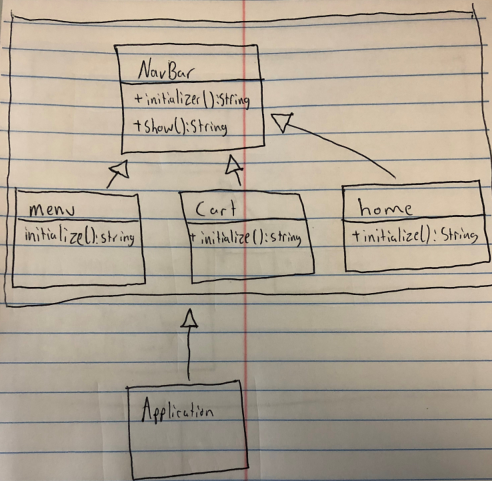 NavBar
+initializer():String
+Show():String
menu
initialize():string
Cart
+initialize():string
home
+initialize():String
Application